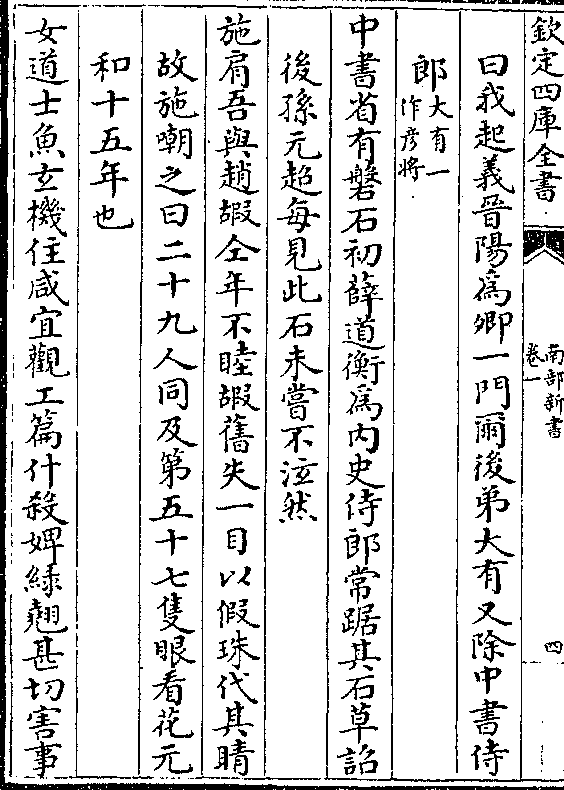 欽定四庫全書
南部新書
卷一
四
曰我起義晉陽為卿一門爾後弟大有又除中書侍
郎大有一
作彦將
中書省有磐石初薛道衡為内史侍郎常踞其石草詔
後孫元超每見此石未嘗不泫然
施肩吾與趙嘏仝年不睦嘏舊失一目以假珠代其睛
故施嘲之曰二十九人同及第五十七隻眼看花元
和十五年也
女道士魚玄機住咸宜觀工篇什殺婢緑翹甚切害事